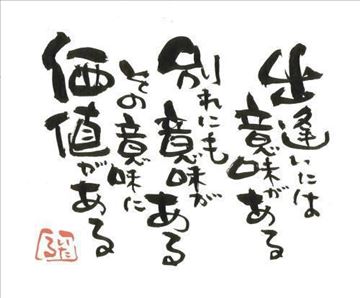 出逢いには
意味がある
別れにも
意味がある
その意味に
価値がある
いたる